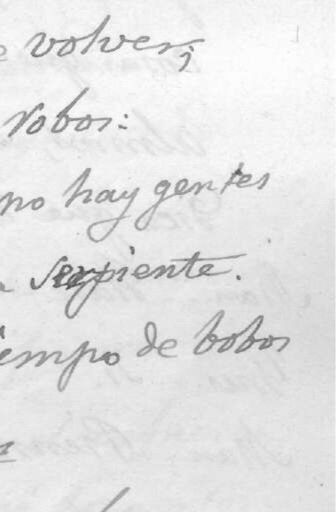 volver;
robos:
no hay gentes
serpiente.
iempo de bobos